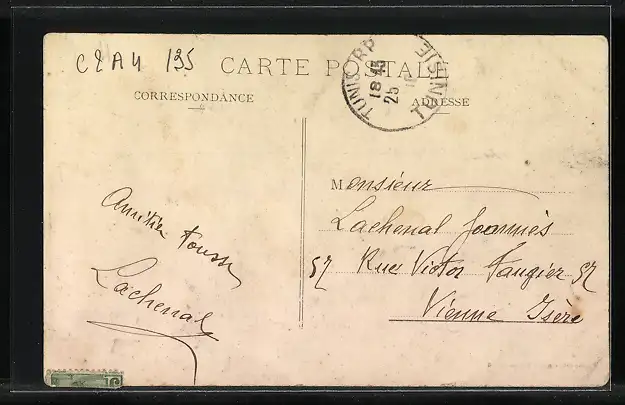 C2AU 195
CARTE POSTALE
CORRESPONDANCE
ADRESSE
TUNIS RP
18 45
25
TUNISIE
Monsieur
Lachenal Joannès
57 Rue Victor Faugier 57
Vienne Isère
Amitiés
Lachenal